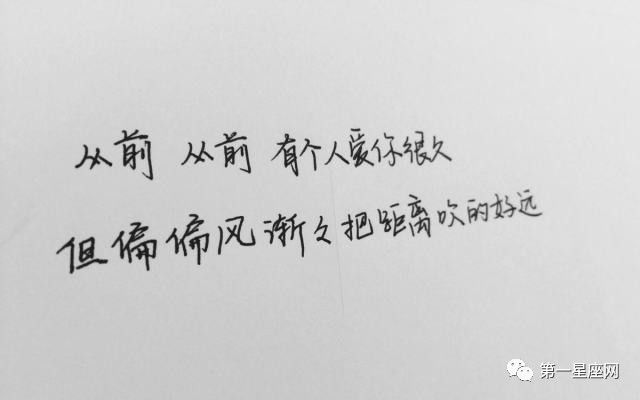 从前 从前 有个人爱你很久
但偏偏风渐々把距离吹的好远
第一星座网